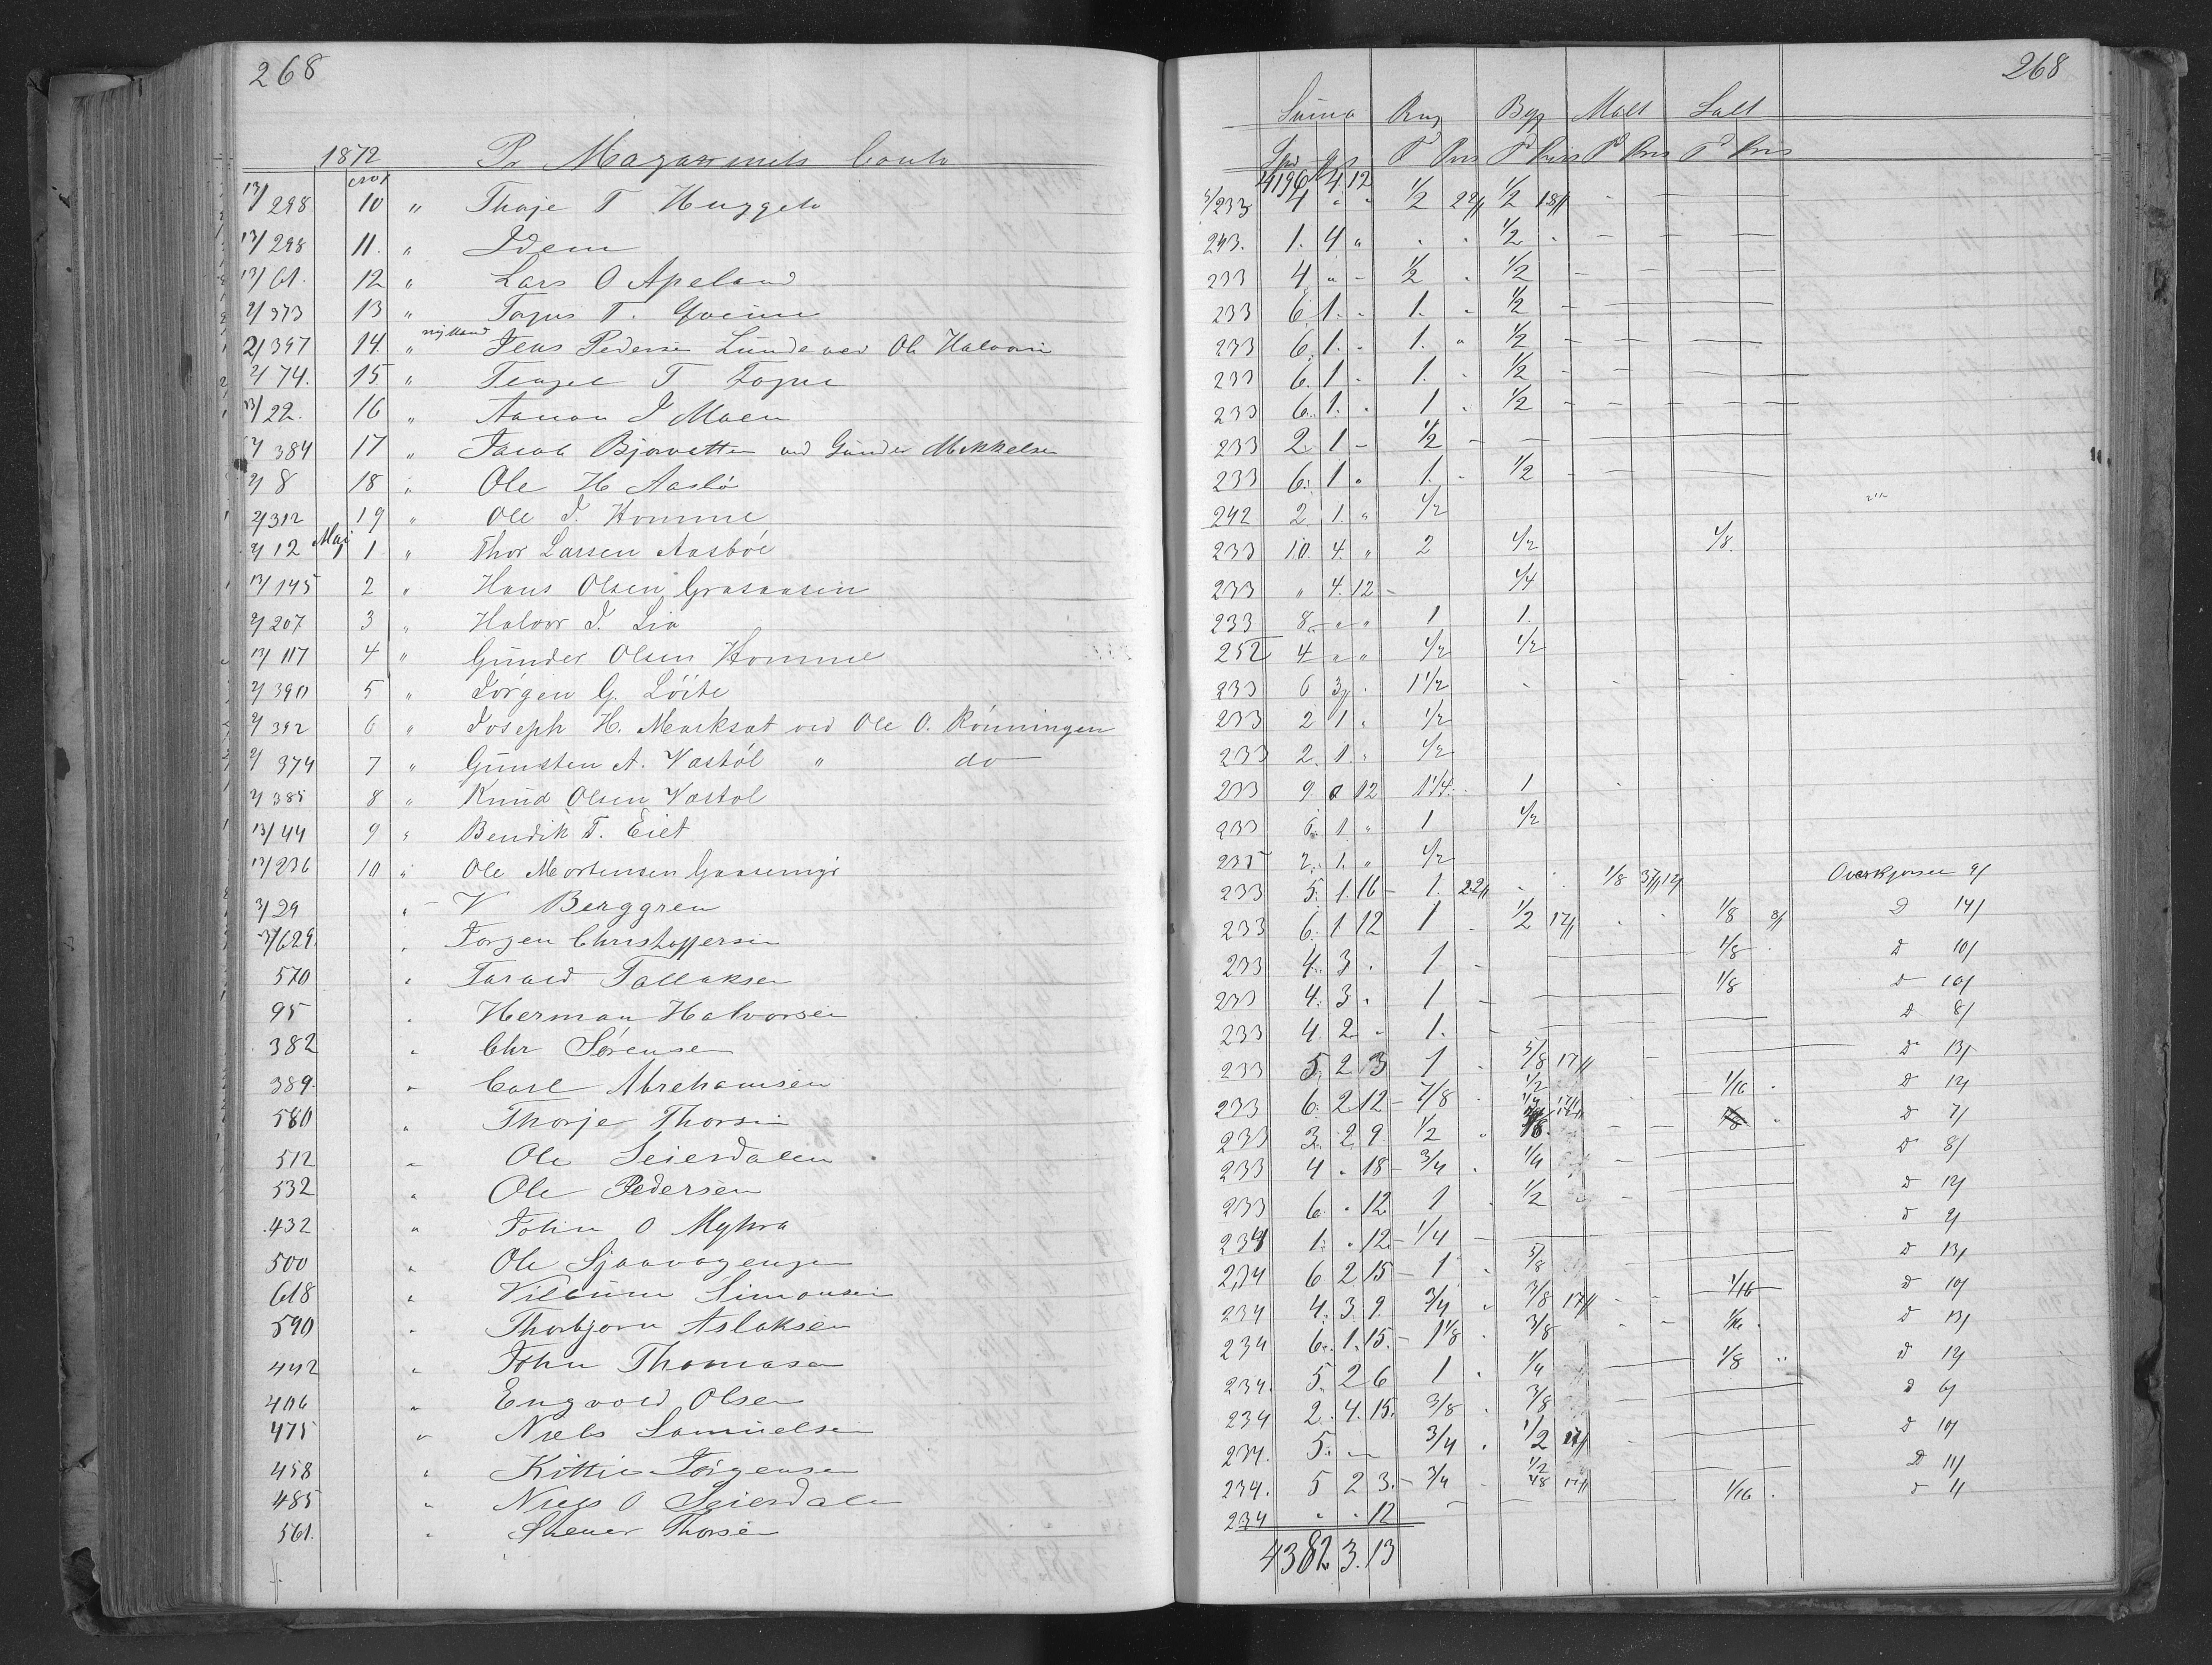 268
1872 Pr Magazinets Conto
13/298 10 " Thoje T Huggeto
13/298 11. " Idem
13/61. 12 " Lars O Apeland
2/373 13 "
2/397 14. " Jens Pedersen Lunde ved Ole Halvorsen
2/74. 15 "
13/22. 16 " Aanon J Moen
2/384 17 " Jacob Bjorvatten ved Gunder Mikkelsen
2/8 18 " Ole H Aasbö
2/312 19 " Ole J. Homme
2/12 Maj 1 " Thor Larsen Aasböe
13/145 2 " Hans Olsen Grasaasen
2/207 3 " Halvor J. Lia
13/117 4 " Gunder Olsen Homme
2/390 5 " Jörgen G. Löite
2/392 6 " Joseph H. Marksat ved Ole O. Rönningen
2/374 7 " Gunsten A. Vastöl " do
2/385 8 " Knud Olsen Vastöl
13/44 9 " Bendik T. Eiet
13/236 10 " Ole Mortensen
3/29 " V Berggren
3/629. " Jörgen Christoffersen
570 " Tarald Tallaksen
95 " Herman Halvorsen
382 " Chr Sörensen
389. " Carl Abrahamsen
580 " Thorje Thorsen
512 " Ole Seierdalen
532 " Ole Pedersen
432 " John O Myhra
500 " Ole
618 " Vilhum Simonsen
590 " Thorbjorn Aslaksen
442 " John Thomasen
406 " Engvold Olsen
475 " Niels Samuelsen
458 " Kittil Jörgensen
485 " Niels O Seierdalen
561. " Thorsen
268
Suma Rug Byg Malt Salt
Spd Pris Pris Pris Pris
4196 4 12
3/233 4 " " 1/2 22 1/2 18
243. 1. 4 " 1/2
233 4 " - 1/2 1/2
233 6 1. 1. 1/2
233 6. 1. 1. 1/2
233 6. 1 1. 1/2
233 6. 1. 1 1/2
233 2. 1 - 1/2
233 6. 1 " 1. 1/2
242 2 1. " 1/2
233 10 4. " 2 1/2 1/8.
233 " 4. 12 1/4
233 8 " " 1 1.
252 4 " " 1/2 1/2
233 6 3 1 1/2
233 2 1. 1/2
233 2. 1. 1/2
233 9. 0 12 1 1/4. 1
233 6. 1. " 1 1/2
235 2. 1. " 1/2
233 5. 1. 16 1. 22 1/8 37 12 Overkjørsel 9/
233 6. 1 12 1 1/2 17 1/8 8/ D 14/
233 4. 3 1 1/8 D 10/
233 4. 3 1 1/8 D 10/
233 4 2 1. D 8/
233 5. 2 3 1 5/8 17 D 13/
233 6. 2 12 7/8 1/2 1/16 D 12/
233 3. 2 9. 1/2 D 7/
233 4 18 3/4 1/4 D 8/
233 6. 12 1 1/2 D 12/
234 1. 12. 1/4 D 2/
234 6 2 15 1 5/8 D 13/
234 4. 3 9. 3/4 3/8 17 1/16 D 10/
234 6. 1. 15. 1 1/8 3/8 1/16 D 13/
234. 5. 2 6 1 1/4 1/8 D 12/
234 2. 4. 15. 3/8 3/8 D 6/
234. 5. 3/4 1/2 17 D 10/
234. 5 2 3. 3/4 1/2 17 D 11/
234 12 1/16
4382 3. 13